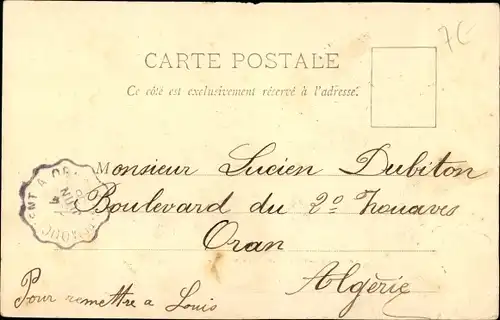 7€
CARTE POSTALE
Ce côté est exclusivement réservé à l'adresse.
Monsieur Lucien Dubiton
Boulevard du 2º Zouaves
Oran
Algérie
Pour remettre a Louis
JUIN